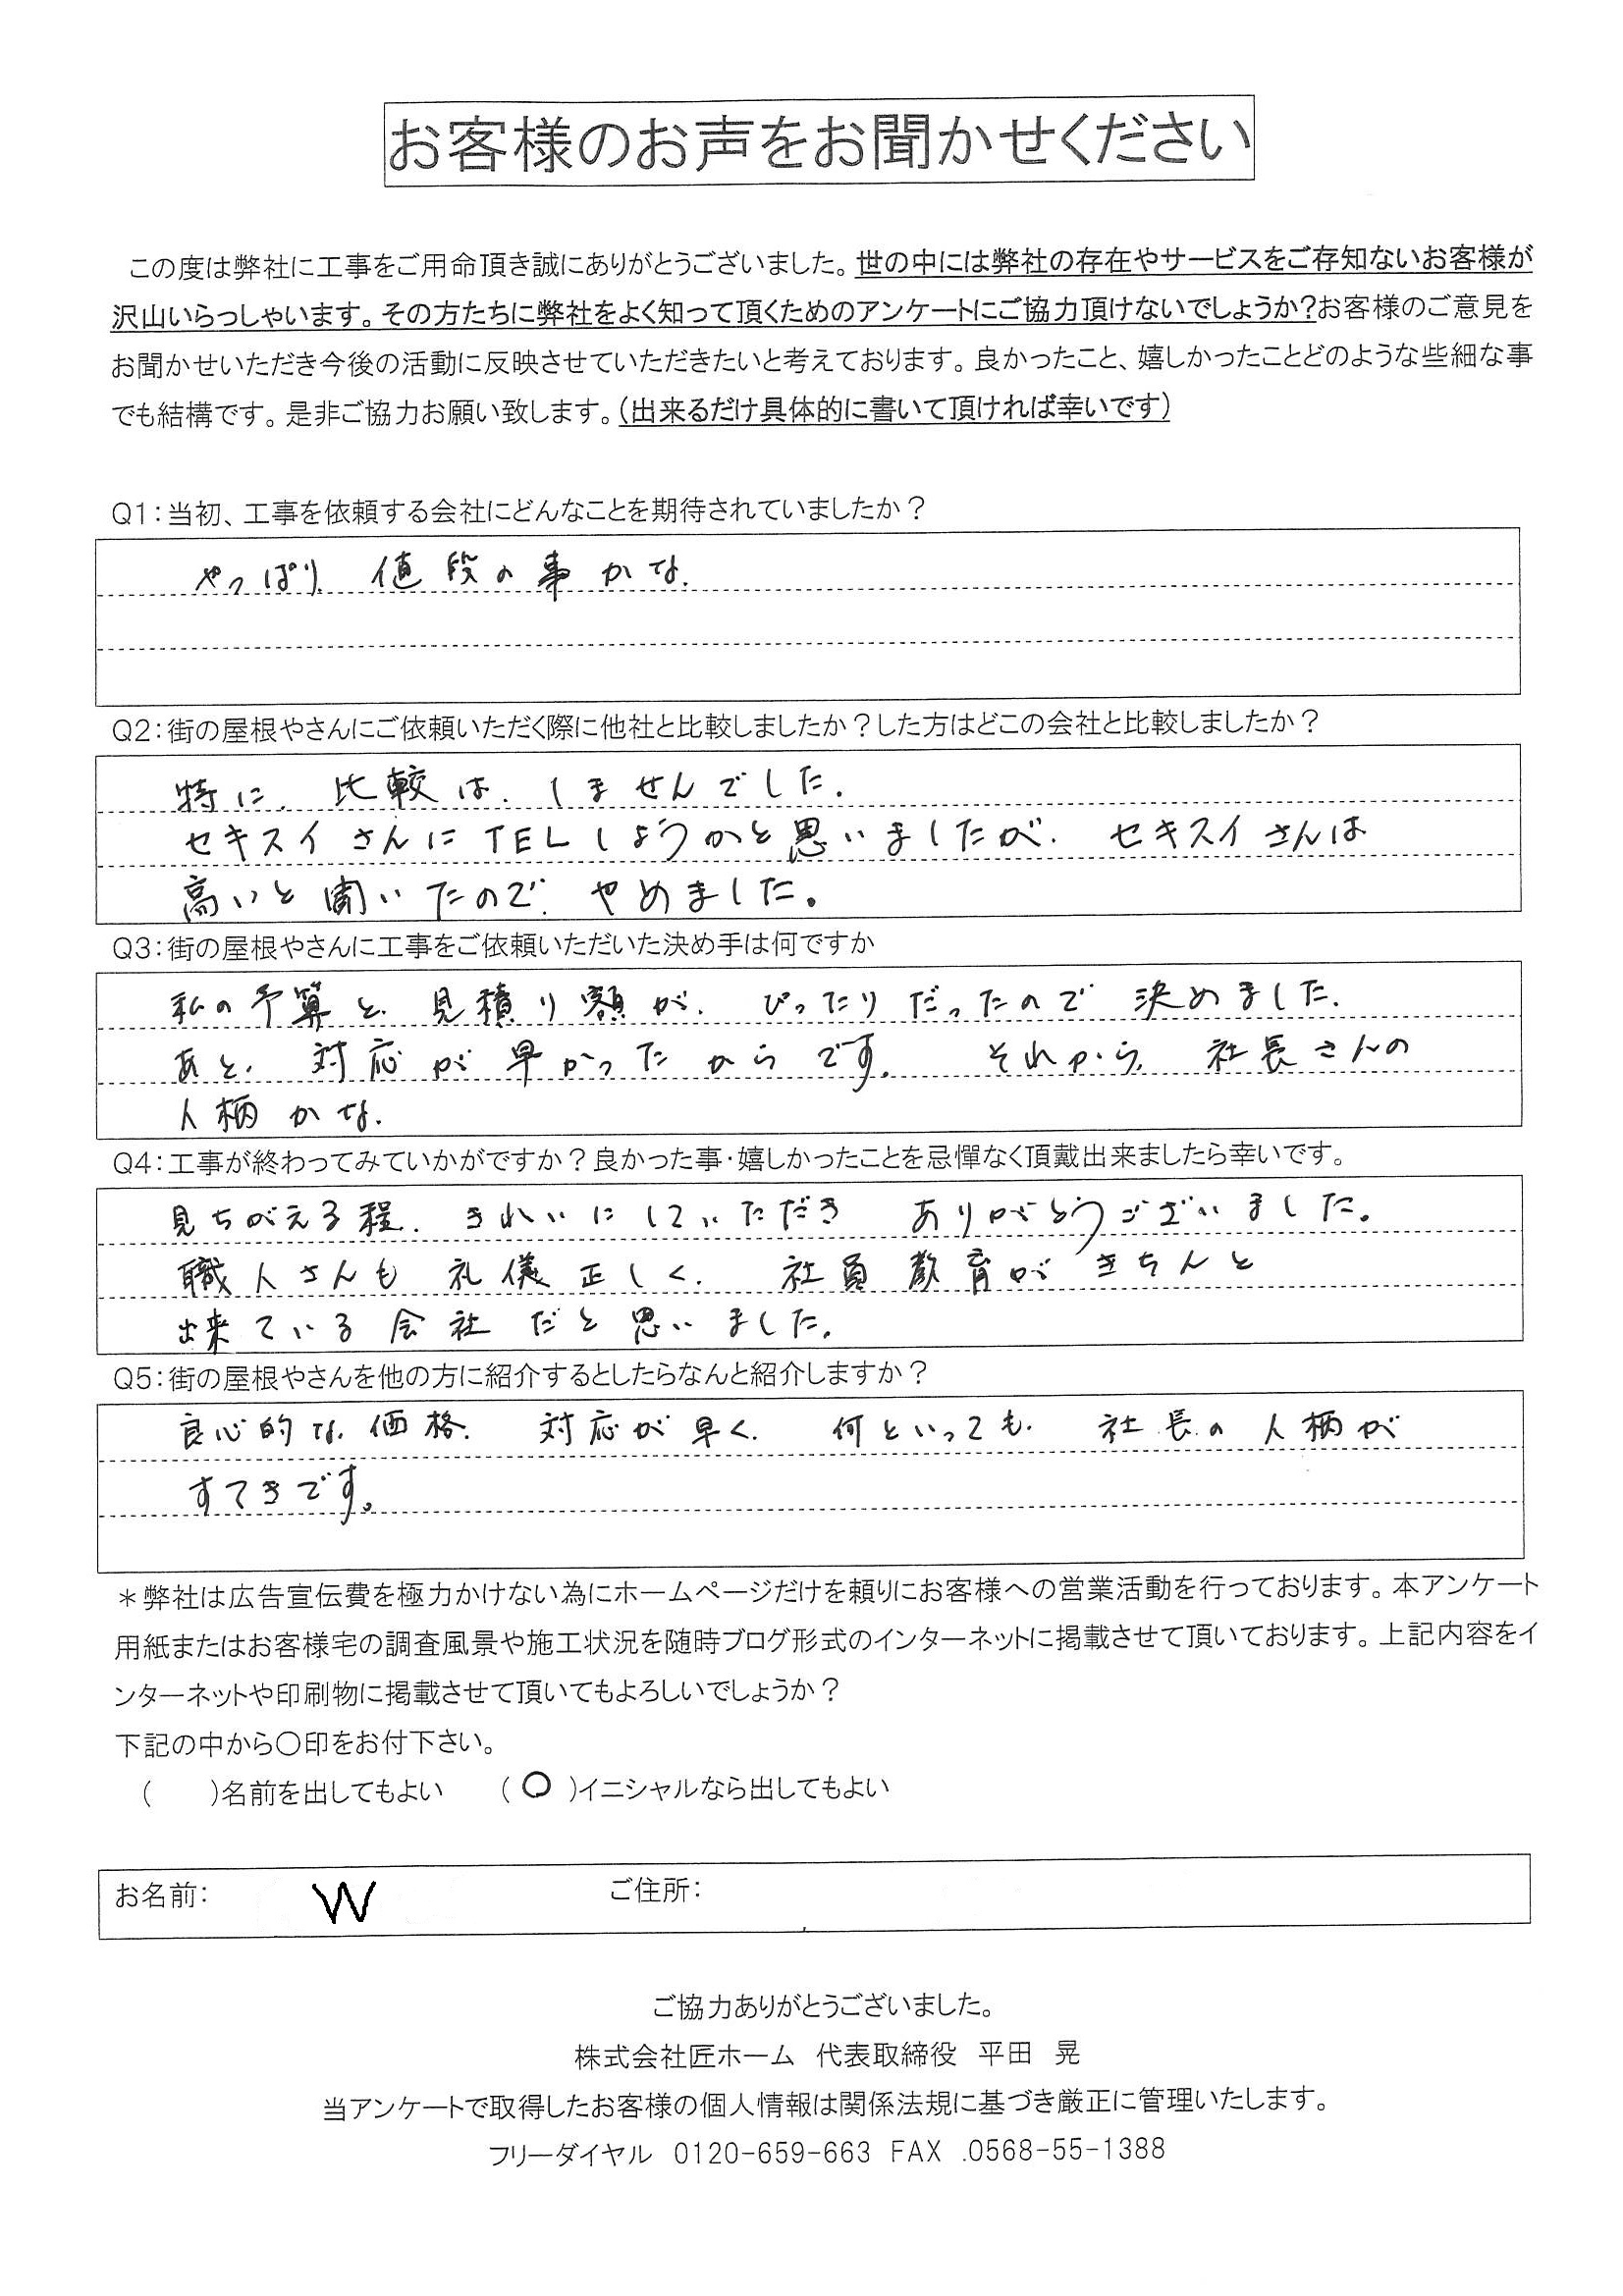 お客様のお声をお聞かせください
この度は弊社に工事をご用命頂き誠にありがとうございました。世の中には弊社の存在やサービスをご存知ないお客様が
沢山いらっしゃいます。その方たちに弊社をよく知って頂くためのアンケートにご協力頂けないでしょうか?お客様のご意見を
お聞かせいただき今後の活動に反映させていただきたいと考えております。良かったこと、嬉しかったことどのような些細な事
でも結構です。是非ご協力お願い致します。(出来るだけ具体的に書いて頂ければ幸いです)
Q1:当初、工事を依頼する会社にどんなことを期待されていましたか？
やっぱり、値段の事かな、
Q2:街の屋根やさんにご依頼いただく際に他社と比較しましたか？した方はどこの会社と比較しましたか？
特に、比較は、しませんでした。
セキスイさんにTELしようかと思いましたが、セキスイさんは
高いと聞いたので、やめました。
Q3:街の屋根やさんに工事をご依頼いただいた決め手は何ですか
私の予算と、見積り額が、ぴったりだったので決めました。
あと、対応が早かったからです。それから、社長さんの
人柄かな、
Q4:工事が終わってみていかがですか？良かった事・嬉しかったことを忌憚なく頂戴出来ましたら幸いです。
見ちがえる程、きれいにしていただき ありがとうございました。
職人さんも礼儀正しく、社員教育がきちんと
出来ている会社だと思いました。
Q5:街の屋根やさんを他の方に紹介するとしたらなんと紹介しますか？
良心的な、価格、対応が早く、何といっても、社長の人柄が
すてきです。
＊弊社は広告宣伝費を極力かけない為にホームページだけを頼りにお客様への営業活動を行っております。本アンケート
用紙またはお客様宅の調査風景や施工状況を随時ブログ形式のインターネットに掲載させて頂いております。上記内容をイ
ンターネットや印刷物に掲載させて頂いてもよろしいでしょうか？
下記の中から〇印をお付下さい。
(　　)名前を出してもよい　(〇)イニシャルなら出してもよい
お名前: W ご住所:
ご協力ありがとうございました。
株式会社匠ホーム 代表取締役 平田 晃
当アンケートで取得したお客様の個人情報は関係法規に基づき厳正に管理いたします。
フリーダイヤル 0120-659-663 FAX .0568-55-1388